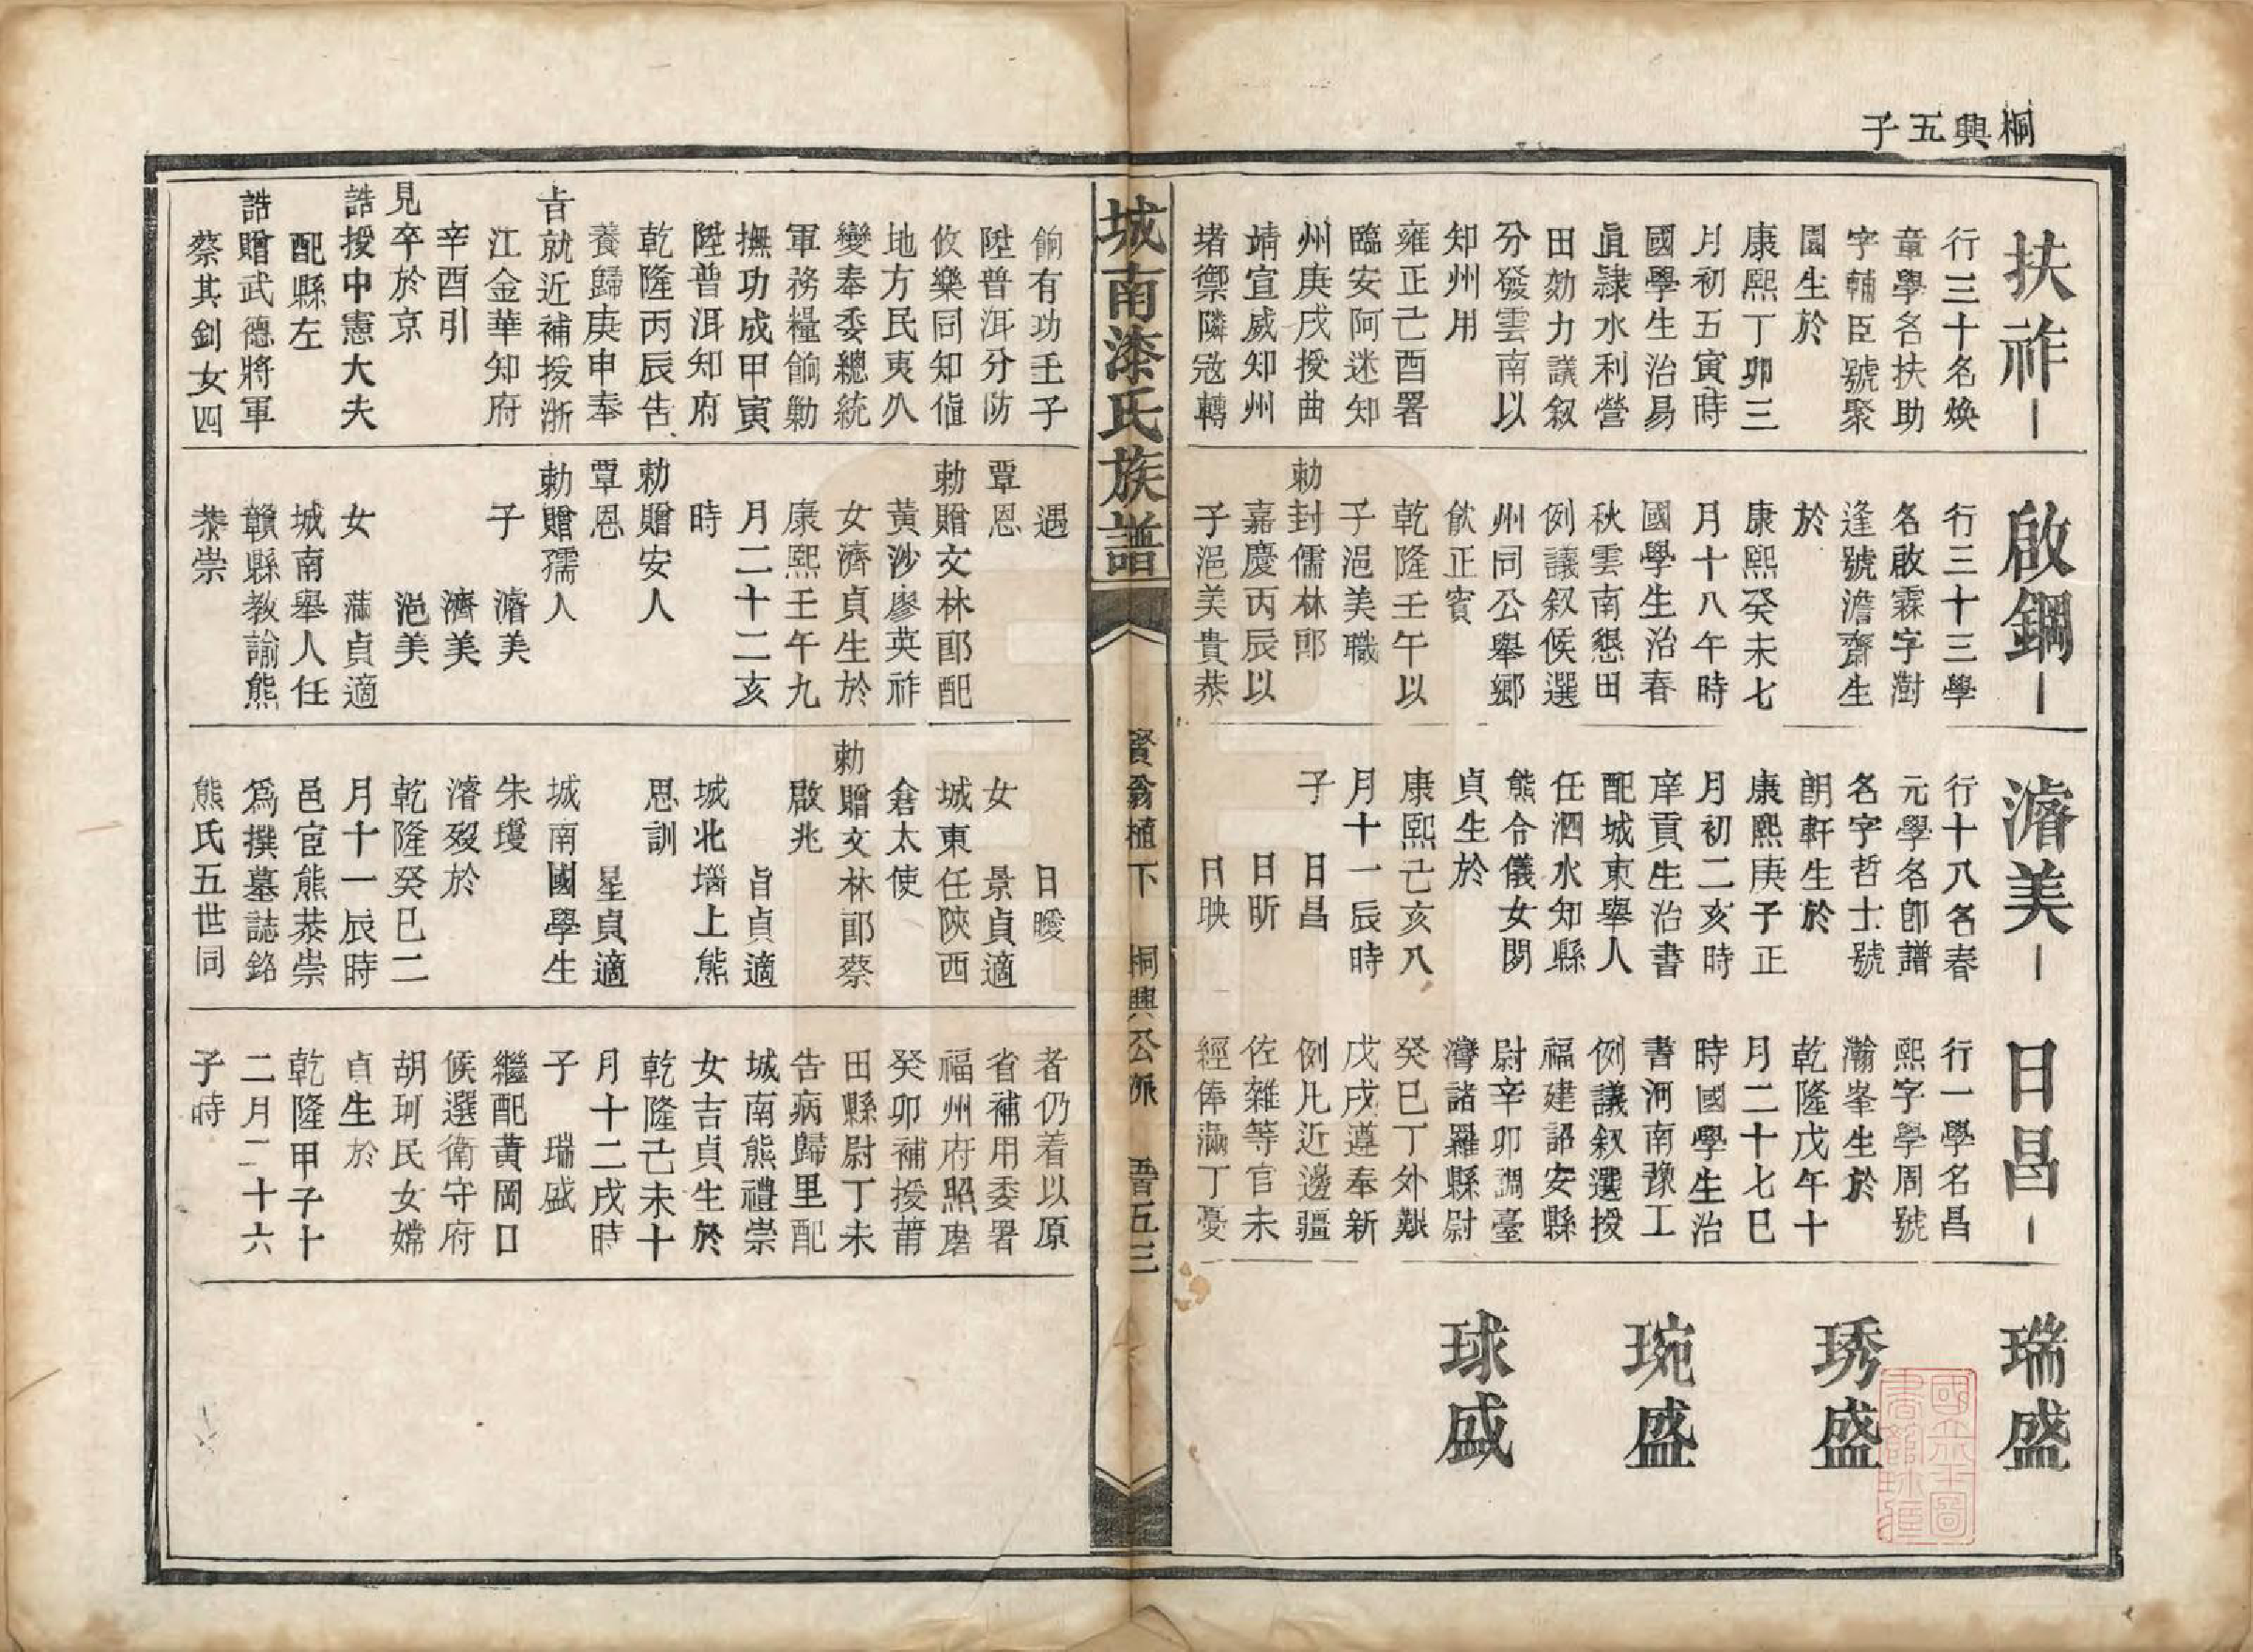 桐興五子
扶祚
行三十名煥
章學名扶助
字輔臣號聚
園生於
康熙丁卯三
月初五寅時
國學生治易
直隸水利營
田効力議叙
分發雲南以
知州用
雍正己酉署
臨安阿迷知
州庚戌授曲
靖宣威知州
堵禦隣寇轉
啟鋼
行三十三學
名啟霖字澍
逢號澹齋生
於
康熙癸未七
月十八午時
國學生治春
秋雲南懇田
例議叙候選
州同公舉鄉
飲正賓
乾隆壬午以
子浥美職
勅封儒林郎
嘉慶丙辰以
子浥美貴恭
濬美
行十八名春
元學名卽譜
名字哲士號
朗軒生於
康熙庚子正
月初二亥時
庠貢生治書
配城東舉人
任泗水知縣
熊令儀女閔
貞生於
康熙己亥八
月十一辰時
子 日昌
日昕
日映
日昌
行一學名昌
熙字學周號
瀚峯生於
乾隆戊午十
月二十七巳
時國學生治
書河南豫工
例議叙選授
福建詔安縣
尉辛卯調臺
灣諸羅縣尉
癸巳丁外艱
戊戌遵奉新
例凡近邊疆
佐雜等官未
經俸滿丁憂
瑞盛
琇盛
琬盛
球盛
城南漆氏族譜
賢翁植下 桐興公派 吾五三
餉有功壬子
陞普洱分防
攸樂同知值
地方民夷久
變奉委總統
軍務糧餉勦
撫功成甲寅
陞普洱知府
乾隆丙辰告
養歸庚申奉
旨就近補授浙
江金華知府
辛酉引
見卒於京
誥授中憲大夫
配縣左
誥贈武德將軍
蔡其釗女四
遇
覃恩
勅贈文林郎配
黃沙廖英祚
女濟貞生於
康熙壬午九
月二十二亥
時
勅贈安人
覃恩
勅贈孺人
子 濬美
濟美
浥美
女 滿貞適
城南舉人任
贛縣教諭熊
恭崇
日曖
女 景貞適
城東任陝西
倉太使
勅贈文林郎蔡
啟兆
旨貞適
城北堖上熊
思訓
星貞適
城南國學生
朱瓊
濬歿於
乾隆癸巳二
月十一辰時
邑宦熊恭崇
爲撰墓誌銘
熊氏五世同
者仍着以原
省補用委署
福州府照磨
癸卯補授莆
田縣尉丁未
告病歸里配
城南熊禮崇
女吉貞生於
乾隆己未十
月十二戌時
子 瑞盛
繼配黃岡口
候選衛守府
胡珂民女嫦
貞生於
乾隆甲子十
二月二十六
子時